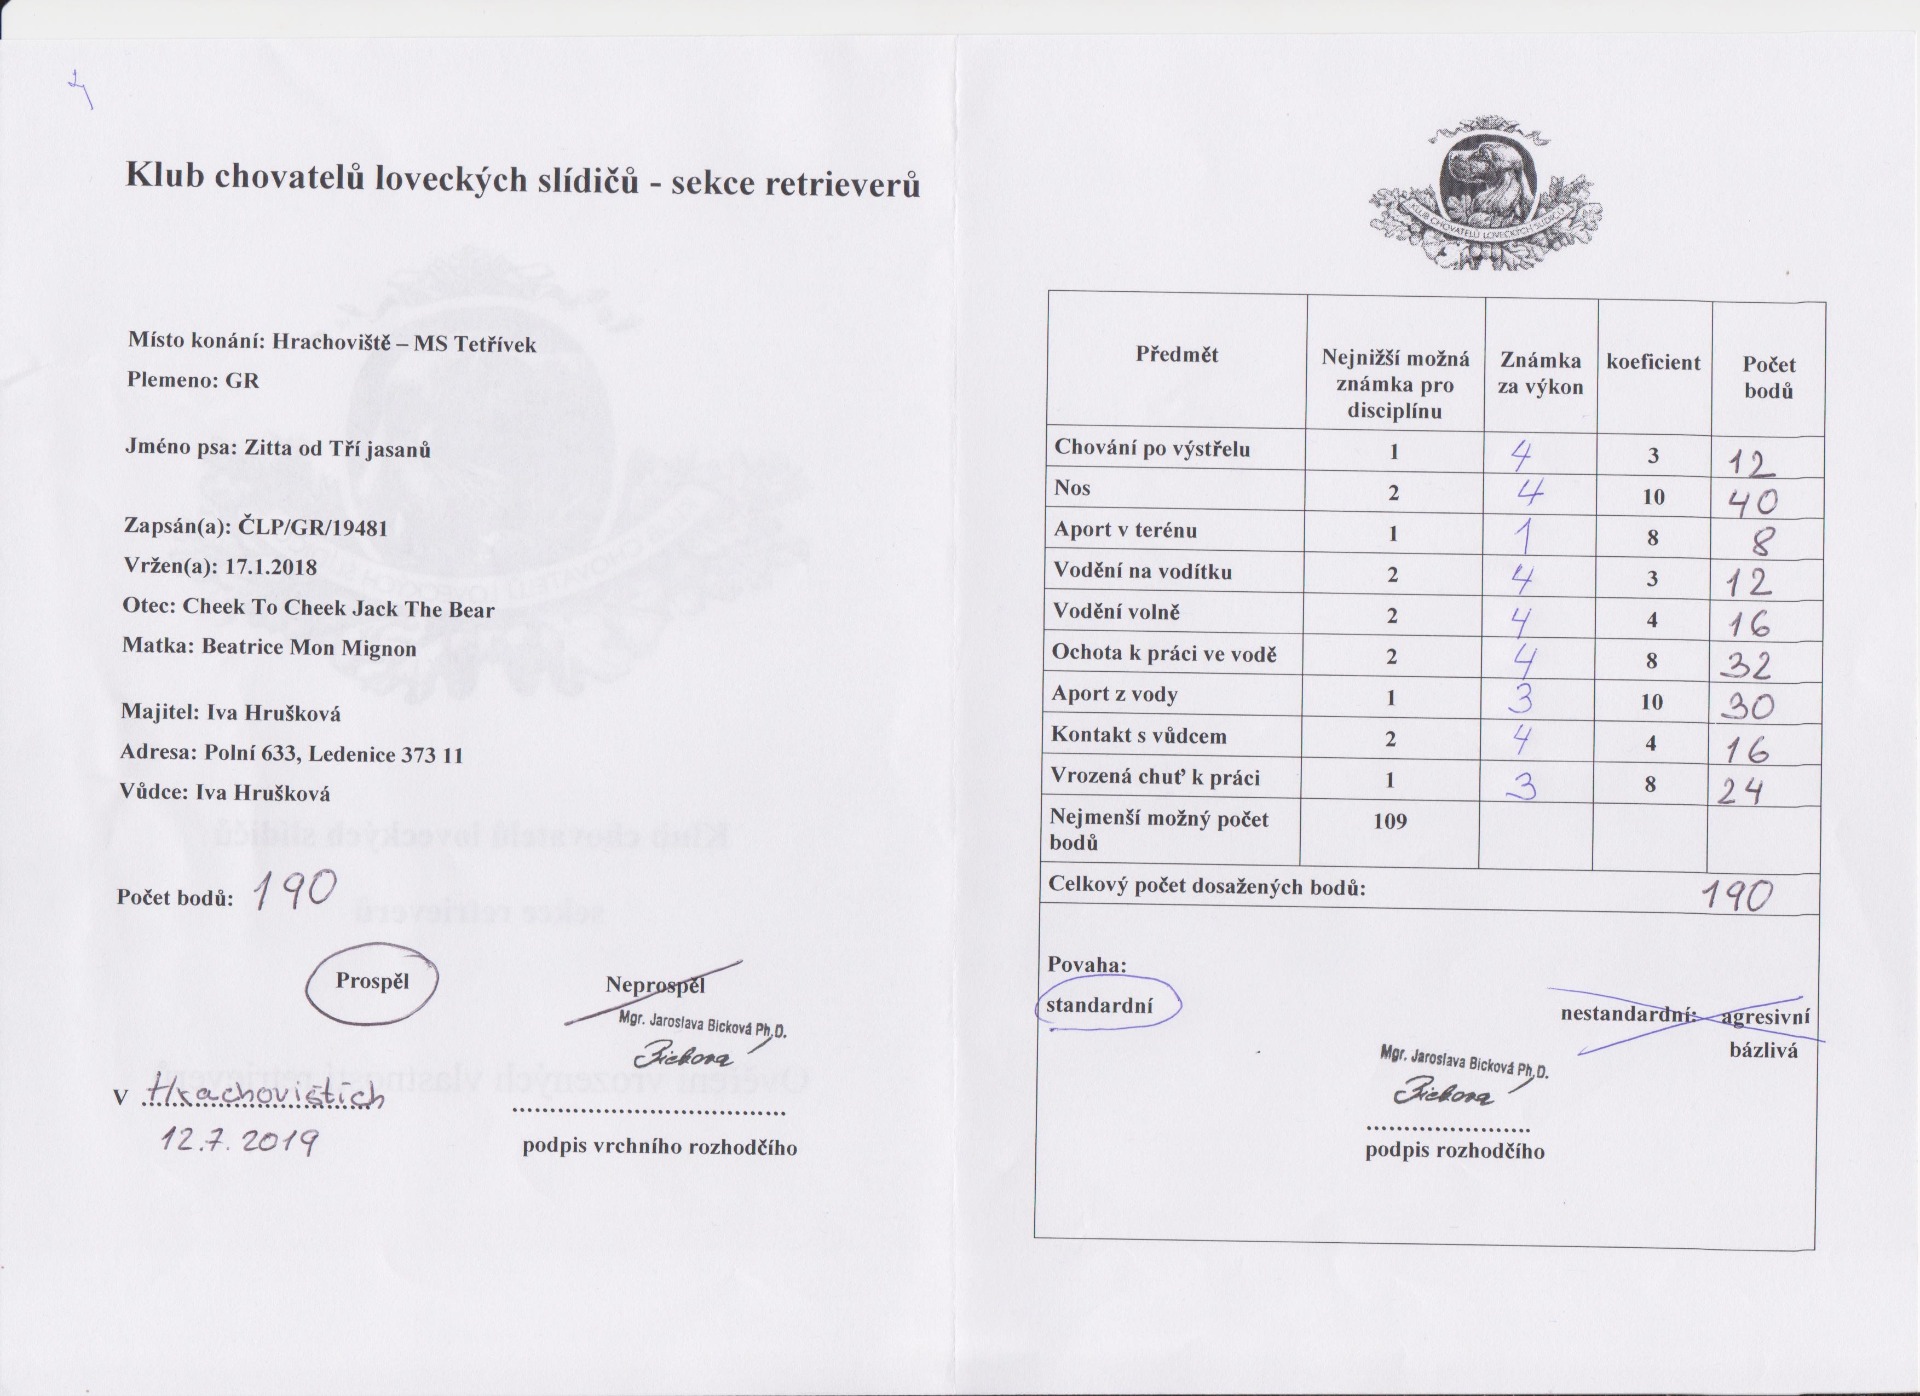 Klub chovatelů loveckých slídičů - sekce retrieverů
Místo konání: Hrachoviště – MS Tetřívek
Plemeno: GR
Jméno psa: Zitta od Tří jasanů
Zapsán(a): ČLP/GR/19481
Vržen(a): 17.1.2018
Otec: Cheek To Cheek Jack The Bear
Matka: Beatrice Mon Mignon
Majitel: Iva Hrušková
Adresa: Polní 633, Ledenice 373 11
Vůdce: Iva Hrušková
Počet bodů: 190
Prospěl Neprospěl
Mgr. Jaroslava Bicková Ph.D.
Bicková
V Hrachovištích
12.7.2019
podpis vrchního rozhodčího
KLUB CHOVATELŮ LOVECKÝCH SLÍDIČŮ
Předmět Nejnižší možná známka pro disciplínu Známka za výkon koeficient Počet bodů
Chování po výstřelu 1 4 3 12
Nos 2 4 10 40
Aport v terénu 1 1 8 8
Vodění na vodítku 2 4 3 12
Vodění volně 2 4 4 16
Ochota k práci ve vodě 2 4 8 32
Aport z vody 1 3 10 30
Kontakt s vůdcem 2 4 4 16
Vrozená chuť k práci 1 3 8 24
Nejmenší možný počet bodů 109
Celkový počet dosažených bodů: 190
Povaha:
standardní nestandardní: agresivní
bázlivá
Mgr. Jaroslava Bicková Ph.D.
Bicková
podpis rozhodčího